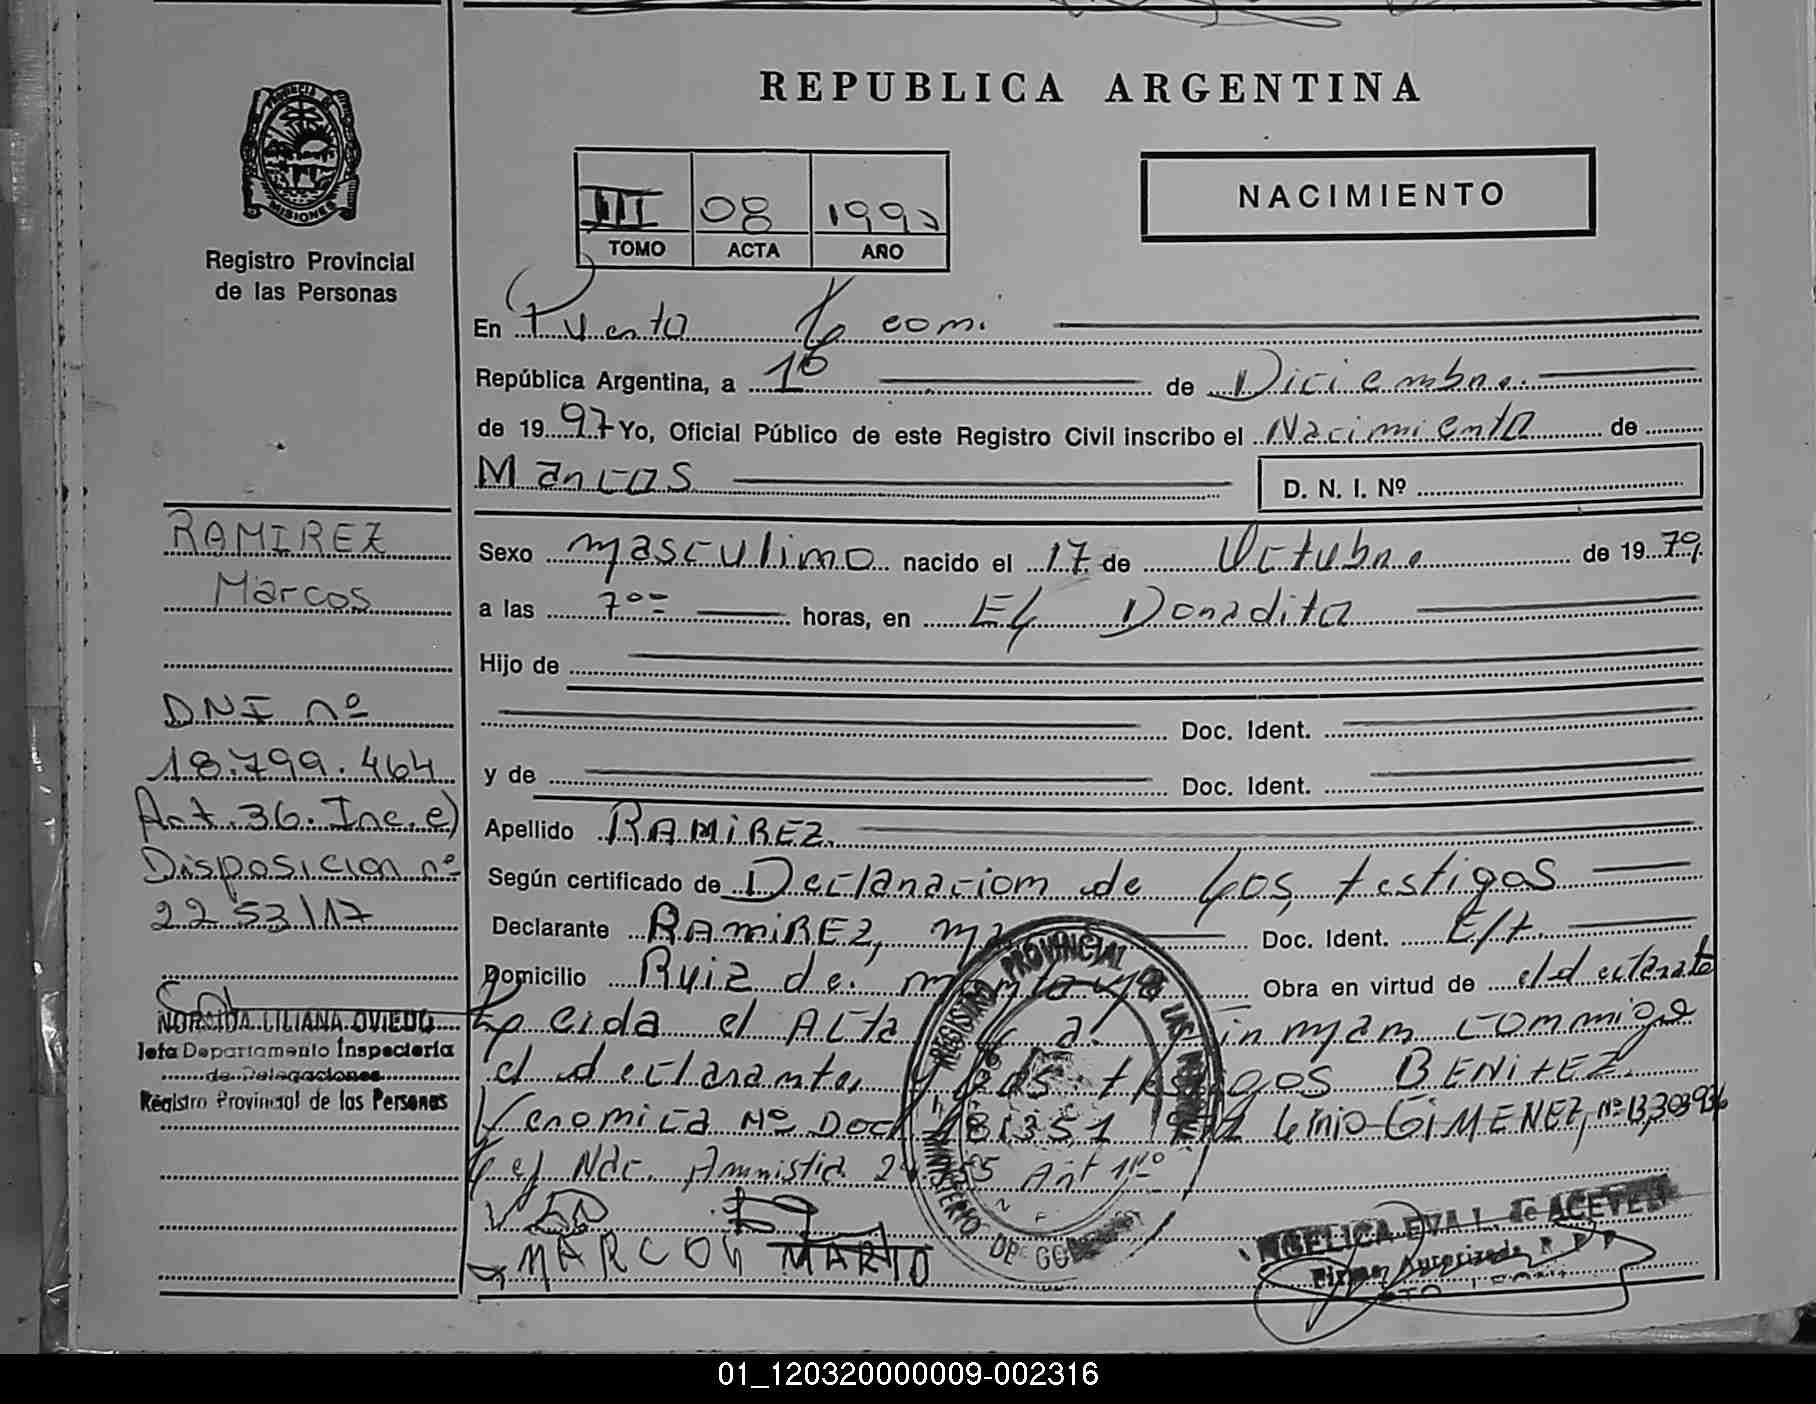 REPUBLICA ARGENTINA
PROVINCIA DE MISIONES
Registro Provincial
de las Personas
III 08 1997
TOMO ACTA AÑO
NACIMIENTO
En Puerto Leoni.
República Argentina, a 1º de Diciembre.
de 1997 Yo, Oficial Público de este Registro Civil inscribo el Nacimiento de
Marcos D. N. I. Nº
Sexo masculino nacido el 17 de Octubre de 1979.
a las 7ºº horas, en El Doradito
Hijo de
Doc. Ident.
y de Doc. Ident.
Apellido RAMIREZ.
Según certificado de Declaración de los testigos
Declarante RAMIREZ, Doc. Ident. E/t.
Domicilio Ruiz de montoya Obra en virtud de el declarate
Leida el Acta inman commigo
el declarante, y los testigos BENITEZ
Veronica Nº Doc Linio GIMENEZ, Nº 13,303936
Ley Nac. Amnistia Art 1º
MARCOS MARIO
RAMIREZ
Marcos
DNI nº
18.799.464
Art.36.Inc.e)
Disposicion nº
2253/17
LILIANA OVIEDO
Jefa Departamento Inspectoria
de Delegaciones
Registro Provincial de las Personas
REGISTRO PROVINCIAL DE LAS
MINISTERIO DE
ANGELICA EVA L. de ACEVEDO
Firma Autorizada R. P. P.
01_120320000009-002316